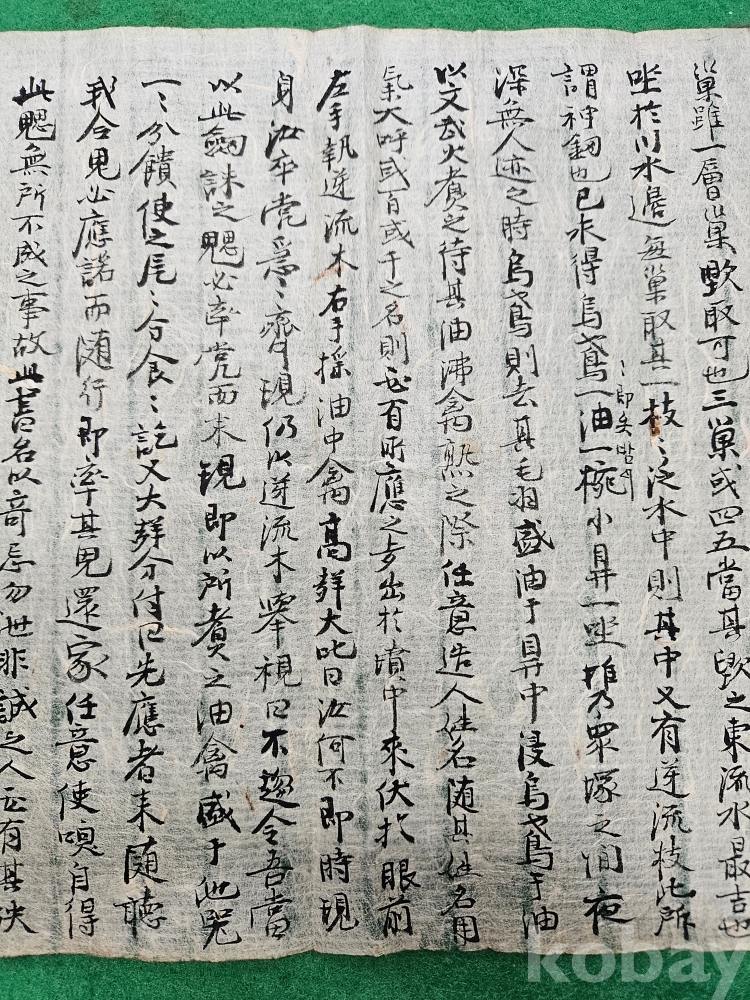 巢雖一處畓巢毀取可也三巢或四五當其毀之東流水最吉也
坐於川水邊每巢取其一枝〻泛水中則其中又有逆流枝此所
謂神劒也已求得烏鳶一油一椀小鼎一坐堆乃衆塚之間夜
深無人迹之時烏鳶則去其毛羽盛油于鼎中浸烏鳶于油
以文武火煮之待其油沸禽熟之際任意造人姓名隨其姓名用
氣大呼或百或千之名則必有所應之者出於墳中來伏於眼前
左手執逆流木右手採油中禽高聲大叱曰汝何不卽時現
身汝卒党急〻齊現仍以逆流木擧視曰不趍令吾當
以此劒誅之魍必率党而來現卽以所煮之油禽盛于他器
一〻分饋使之尾〻分食〻訖又大聲分付曰先應者來隨聽
我合鬼必應諾而隨行卽率其鬼還家任意使喚自得
此魍無所不成之事故此書名以奇忌勿泄非誠之人必有其決
kobay